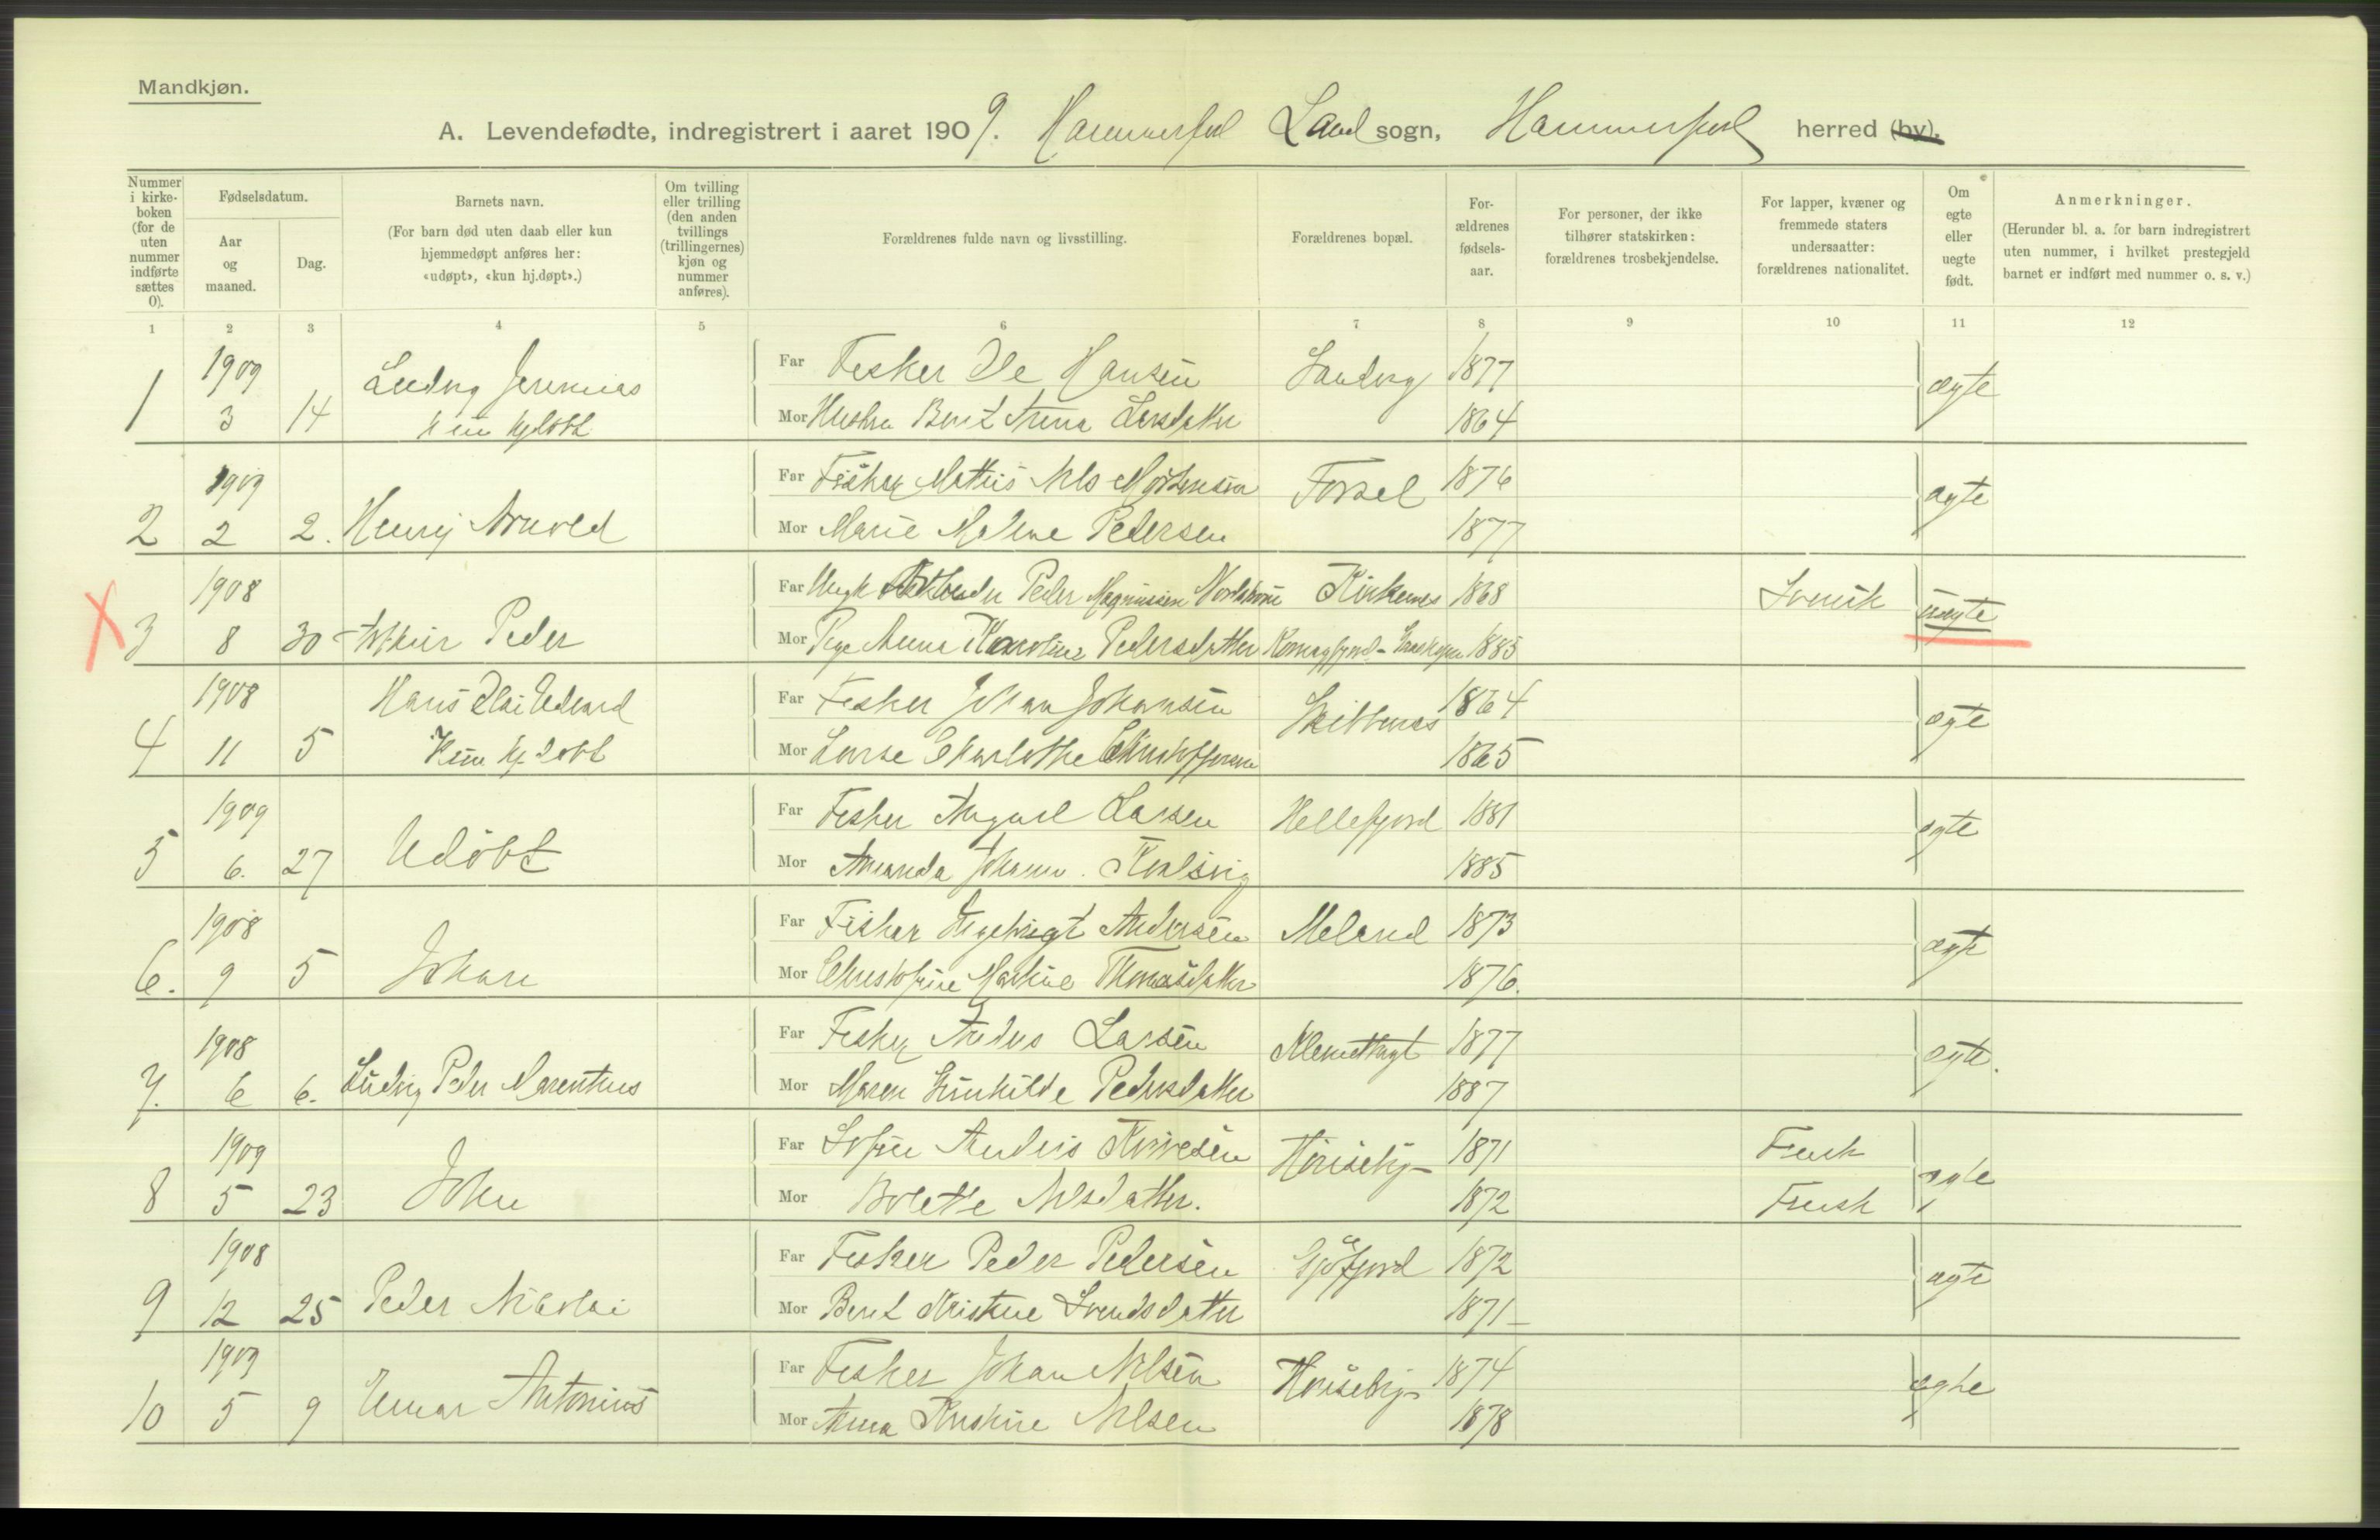 Mandkjøn.
A. Levendefødte, indregistrert i aaret 1909. Hammerfest Land sogn, Hammerfest herred (by).
Nummer i kirke-boken (for de uten nummer indførte sættes 0).
Fødselsdatum.
Aar og maaned.
Dag.
Barnets navn.
(For barn død uten daab eller kun hjemmedøpt anføres her: «udøpt», «kun hj.døpt».)
Om tvilling eller trilling (den anden tvillings (trillingernes) kjøn og nummer anføres).
Forældrenes fulde navn og livsstilling.
Forældrenes bopæl.
For-ældrenes fødsels-aar.
For personer, der ikke tilhører statskirken: forældrenes trosbekjendelse.
For lapper, kvæner og fremmede staters undersaatter: forældrenes nationalitet.
Om egte eller uegte født.
Anmerkninger.
(Herunder bl. a. for barn indregistrert uten nummer, i hvilket prestegjeld barnet er indført med nummer o. s. v.)
1 2 3 4 5 6 7 8 9 10 11 12
1909 Ludvig Jeremias Far Fisker Ole Hansen 1877 ægte
1 3 14 Kun hjdøbt Mor Hustru Berit Anna Larsdatter 1864
1909 Far Fisker Mathis Nils Mortensen Forsøl 1876 ægte
2 2 2. Henrij Arnold Mor Marie Malene Pedersen 1877
1908 Far Peder Magnussen Kirkenes 1868 Svensk uægte
3 8 30 Arthur Peder Mor Pige Anna Karoline Pedersdatter Komagfjord 1885
1908 Hans Edvard Far Fisker Johan Johansen 1864 ægte
4 11 5 Kun hj døbt Mor Lovise Charlotte 1865
1909 Far Fisker August Larsen Hellefjord 1881 ægte
5 6. 27 Udøbt Mor Amanda Johanne Kvalsvig 1885
1908 Far Fisker Ingebrigt Andersen Meland 1873 ægte
6. 9 5 Johan Mor Christofine Martine Thomasdatter 1876.
1908 Far Fisker Anders Larsen 1877 ægte.
7. 6 6. Ludvig Peder Marentius Mor Maren Gunhilde Pedersdatter 1887
1909 Far Anders 1871 Finsk ægte
8 5 23 John Mor Bolette Nilsdatter. 1872 Finsk
1908 Far Fisker Peder Pedersen 1872 ægte
9 12 25 Peder Nikolai Mor Berit Kristine Svendsdatter 1871
1909 Far Fisker Johan Nilsen 1874 ægte
10 5 9 Einar Antonius Mor Anna Kristine Nilsen 1878